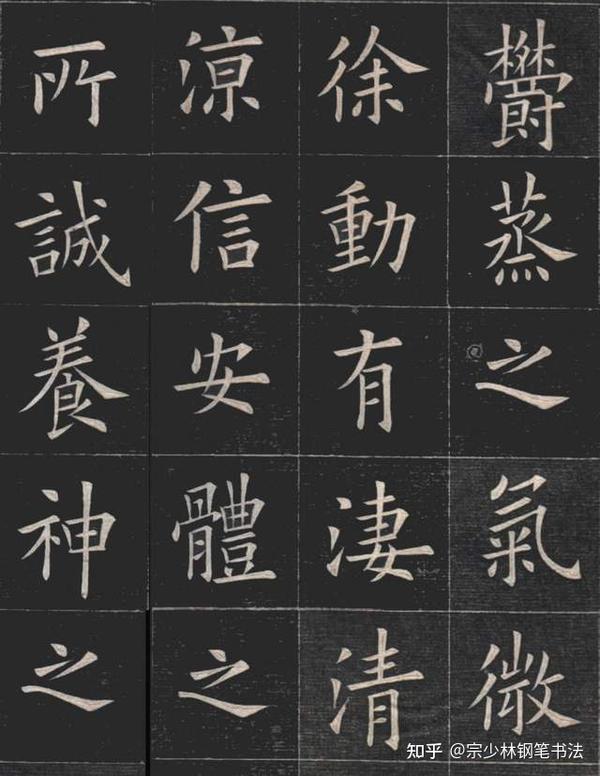 鬱蒸之氣微
徐動有淒清
涼信安體之
所誠養神之
知乎 @宗少林钢笔书法